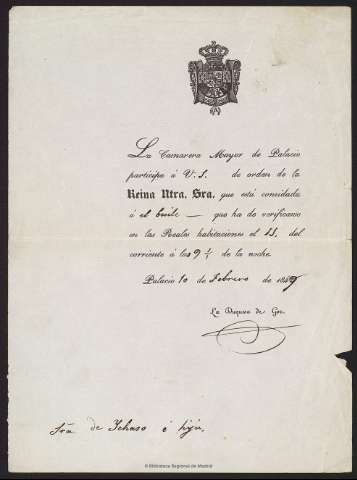 La Camarera Mayor de Palacio
participa á V. S. de orden de la
Reina Ntra. Sra. que está convidada
á el baile que ha de verificarse
en las Reales habitaciones el del
corriente á las 9 ½ de la noche.
Palacio 10 de Febrero de 1849
La Duquesa de Gor.
Sra. de Ychaso é hija.
© Biblioteca Regional de Madrid